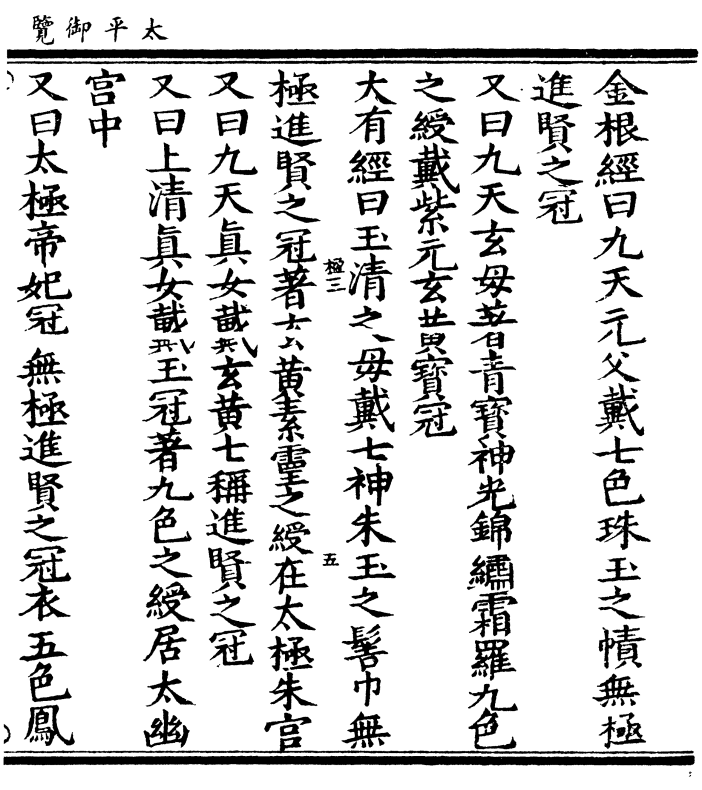 太平御覽
金根經曰九天元父戴七色珠玉之幘無極
進賢之冠
又曰九天玄母著青寶神光錦繡霜羅九色
之綬戴紫元玄黃寶冠
大有經曰玉清之母戴七神朱玉之髻巾無
極三
五
極進賢之冠著玄黃素靈之綬在太極朱宮
又曰九天真女戴玄黃七稱進賢之冠
又曰上清真女戴玉冠著九色之綬居太幽
宮中
又曰太極帝妃冠無極進賢之冠衣五色鳳